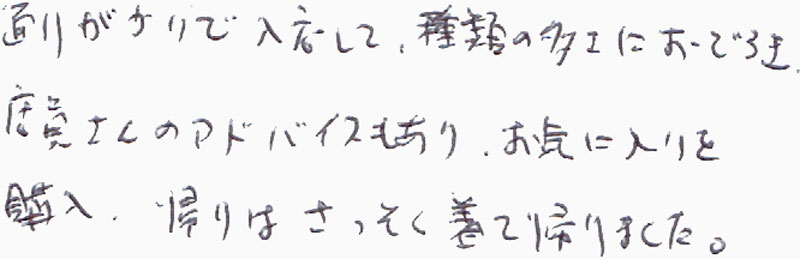 通りがかりで入店して、種類の多さにおどろき、
店員さんのアドバイスもあり、お気に入りを
購入、帰りはさっそく着て帰りました。